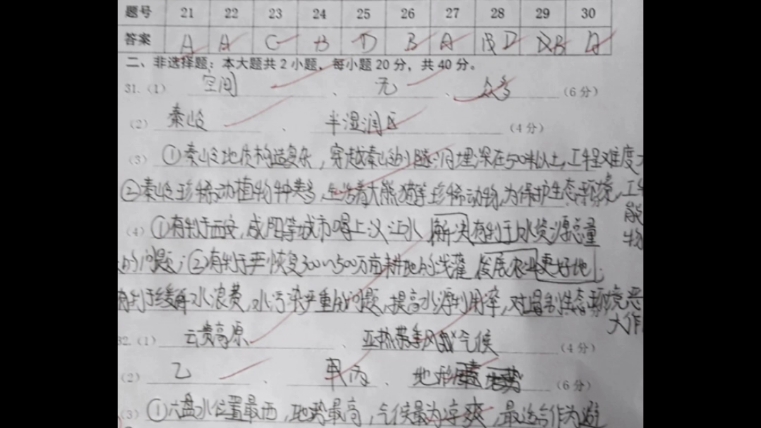 题号 21 22 23 24 25 26 27 28 29 30
答案 A A C B D B A D B A
二、非选择题:本大题共 2 小题,每小题 20 分,共 40 分。
31.(1) 空间 、 无 、 众多 (6 分)
(2) 秦岭 、 半湿润区 (4 分)
(3) ①秦岭地质构造复杂,穿越秦岭的隧洞埋深在500米以上,工程难度大
②秦岭珍稀动植物种类多,生活着大熊猫等珍稀动物,为保护生态环境,工
(4) ①有利于西安,咸阳等城市喝上汉江水 解决 水资源总量
的问题;②有利于恢复300~500万亩耕地的浇灌 发展农业更好地
有利于缓解水浪费,水污染严重的问题,提高水源利用率,对遏制生态环境恶
32.(1) 云贵高原 、 亚热带季风气候 (4 分)
(2) 乙 、 丙 、 地形 (6 分)
(3) ①六盘水位置最西,地势最高,气候最为凉爽,最适合作为避